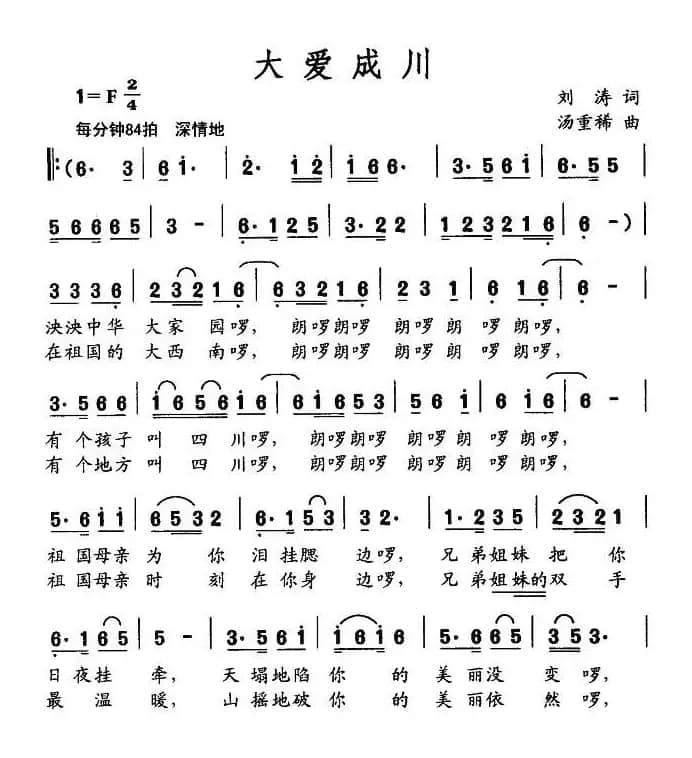 大爱成川
1=F 2/4
刘涛 词
每分钟84拍 深情地
汤重稀 曲
‖:(6· 3 | 6 i· | 2· i2 | i66· | 3·56i | 5 5· |
56665 | 3 - | 6·125 | 3·22 | 123216 | 6 -) |
3336 | 23216 | 63216 | 231 | 6 16 | 6 - |
泱泱中华 大家 园啰, 朗啰朗啰 朗啰朗 啰 朗啰,
在祖国的 大西 南啰, 朗啰朗啰 朗啰朗 啰 朗啰,
3·566 | i656i6 | 6i653 | 56i | 6 i6 | 6 - |
有个孩子 叫 四 川啰, 朗啰朗啰 朗啰朗 啰 朗啰,
有个地方 叫 四 川啰, 朗啰朗啰 朗啰朗 啰 朗啰,
5·6ii | 6532 | 6·153 | 32· | 1·235 | 2321 |
祖国母亲 为 你 泪挂腮 边啰, 兄弟姐妹 把 你
祖国母亲 时 刻 在你身 边啰, 兄弟姐妹的双 手
6·165 | 5 - | 3·56i | i6i6 | 5·653 | 353· |
日夜挂 牵, 天塌地陷 你 的 美丽没 变 啰,
最 温 暖, 山摇地破 你 的 美丽依 然啰,